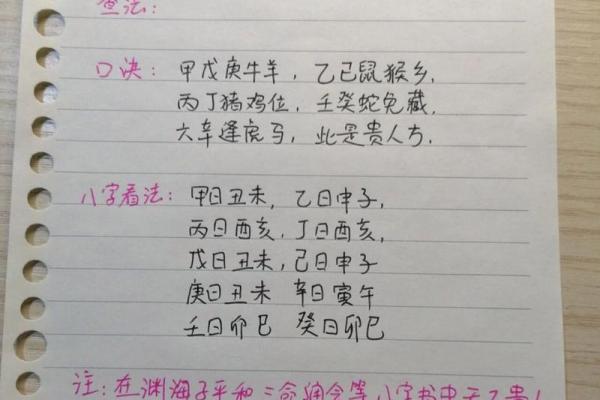 查法：
口诀：甲戊庚牛羊，乙己鼠猴乡，
丙丁猪鸡位，壬癸蛇兔藏，
六辛逢虎马，此是贵人方．
八字看法：甲日丑未，乙日申子，
丙日酉亥，丁日酉亥，
戊日丑未，己日申子
庚日丑未 辛日寅午
壬日卯巳 癸日卯巳
注：在渊海子平和三命通会等八字书中天乙贵人